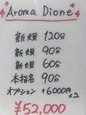 Aroma Dione
新規 120分
新規 90分
新規 60分
本指名 90分
オプション +6000円×2
¥52,000